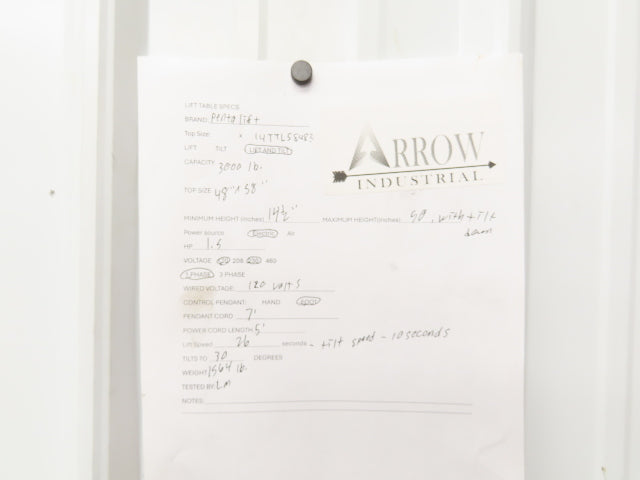 LIFT TABLE SPECS
BRAND: Pentalift
Top Size: x 14TTL58483
LIFT TILT LIFT AND TILT
CAPACITY 3000 lb.
TOP SIZE 48" x 58"
ARROW
INDUSTRIAL
MINIMUM HEIGHT (inches) 14½" MAXIMUM HEIGHT (inches) 50, with tilt
down
Power source Electric Air
HP 1.5
VOLTAGE 120 208 230 460
1 PHASE 3 PHASE
WIRED VOLTAGE: 120 volts
CONTROL PENDANT: HAND FOOT
PENDANT CORD 7'
POWER CORD LENGTH 5'
Lift Speed 26 seconds - tilt speed - 10 seconds
TILTS TO 30 DEGREES
WEIGHT 1564 lb.
TESTED BY: LM
NOTES: